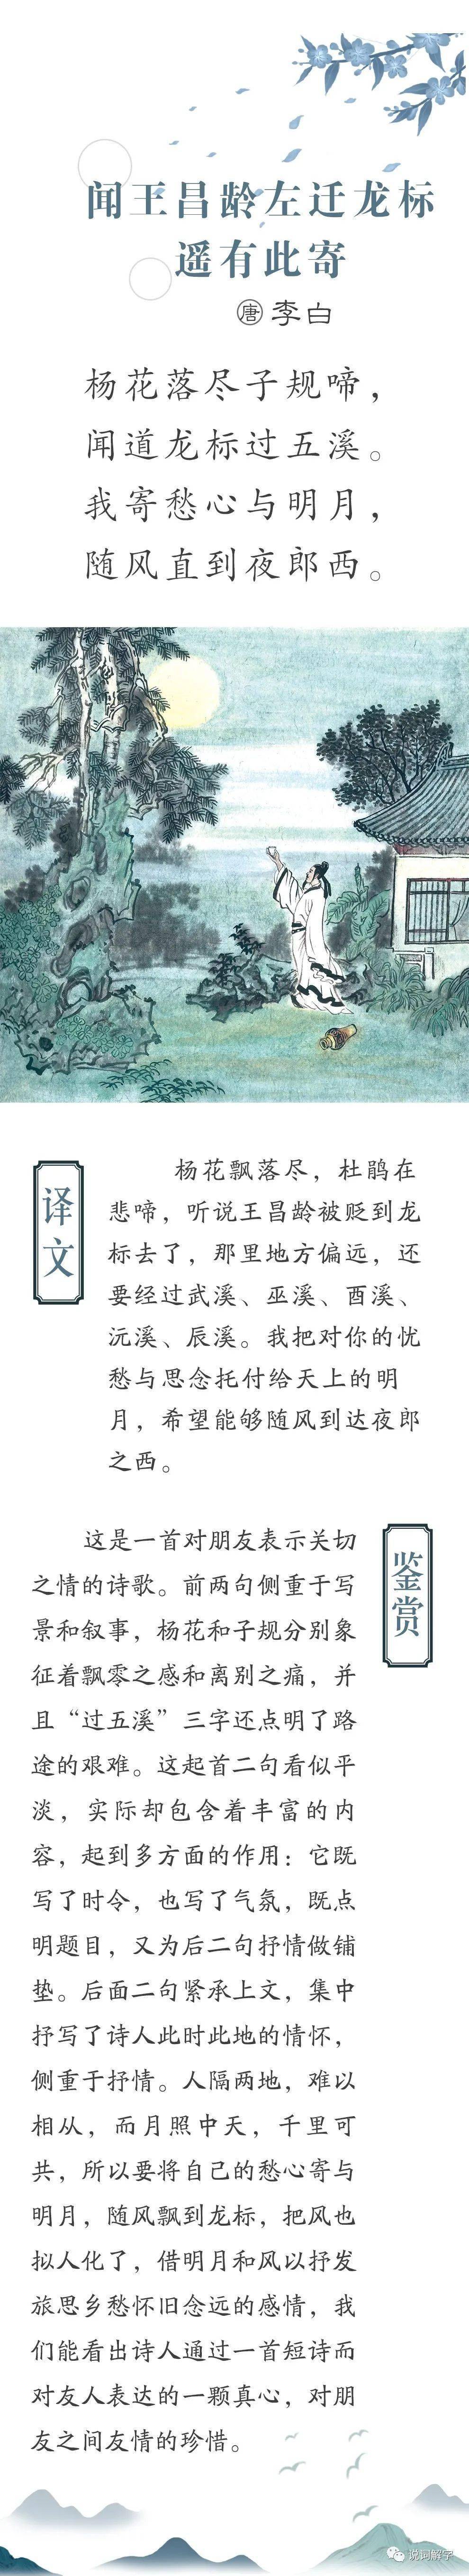 闻王昌龄左迁龙标
遥有此寄
唐 李白
杨花落尽子规啼，
闻道龙标过五溪。
我寄愁心与明月，
随风直到夜郎西。
译文
杨花飘落尽，杜鹃在
悲啼，听说王昌龄被贬到龙
标去了，那里地方偏远，还
要经过武溪、巫溪、酉溪、
沅溪、辰溪。我把对你的忧
愁与思念托付给天上的明
月，希望能够随风到达夜郎
之西。
鉴赏
这是一首对朋友表示关切
之情的诗歌。前两句侧重于写
景和叙事，杨花和子规分别象
征着飘零之感和离别之痛，并
且“过五溪”三字还点明了路
途的艰难。这起首二句看似平
淡，实际却包含着丰富的内
容，起到多方面的作用：它既
写了时令，也写了气氛，既点
明题目，又为后二句抒情做铺
垫。后面二句紧承上文，集中
抒写了诗人此时此地的情怀，
侧重于抒情。人隔两地，难以
相从，而月照中天，千里可
共，所以要将自己的愁心寄与
明月，随风飘到龙标，把风也
拟人化了，借明月和风以抒发
旅思乡愁怀旧念远的感情，我
们能看出诗人通过一首短诗而
对友人表达的一颗真心，对朋
友之间友情的珍惜。
说词解字